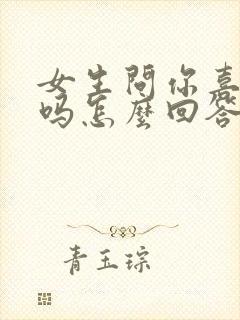 女生問你喜
嗎怎麼回答
青玉琮